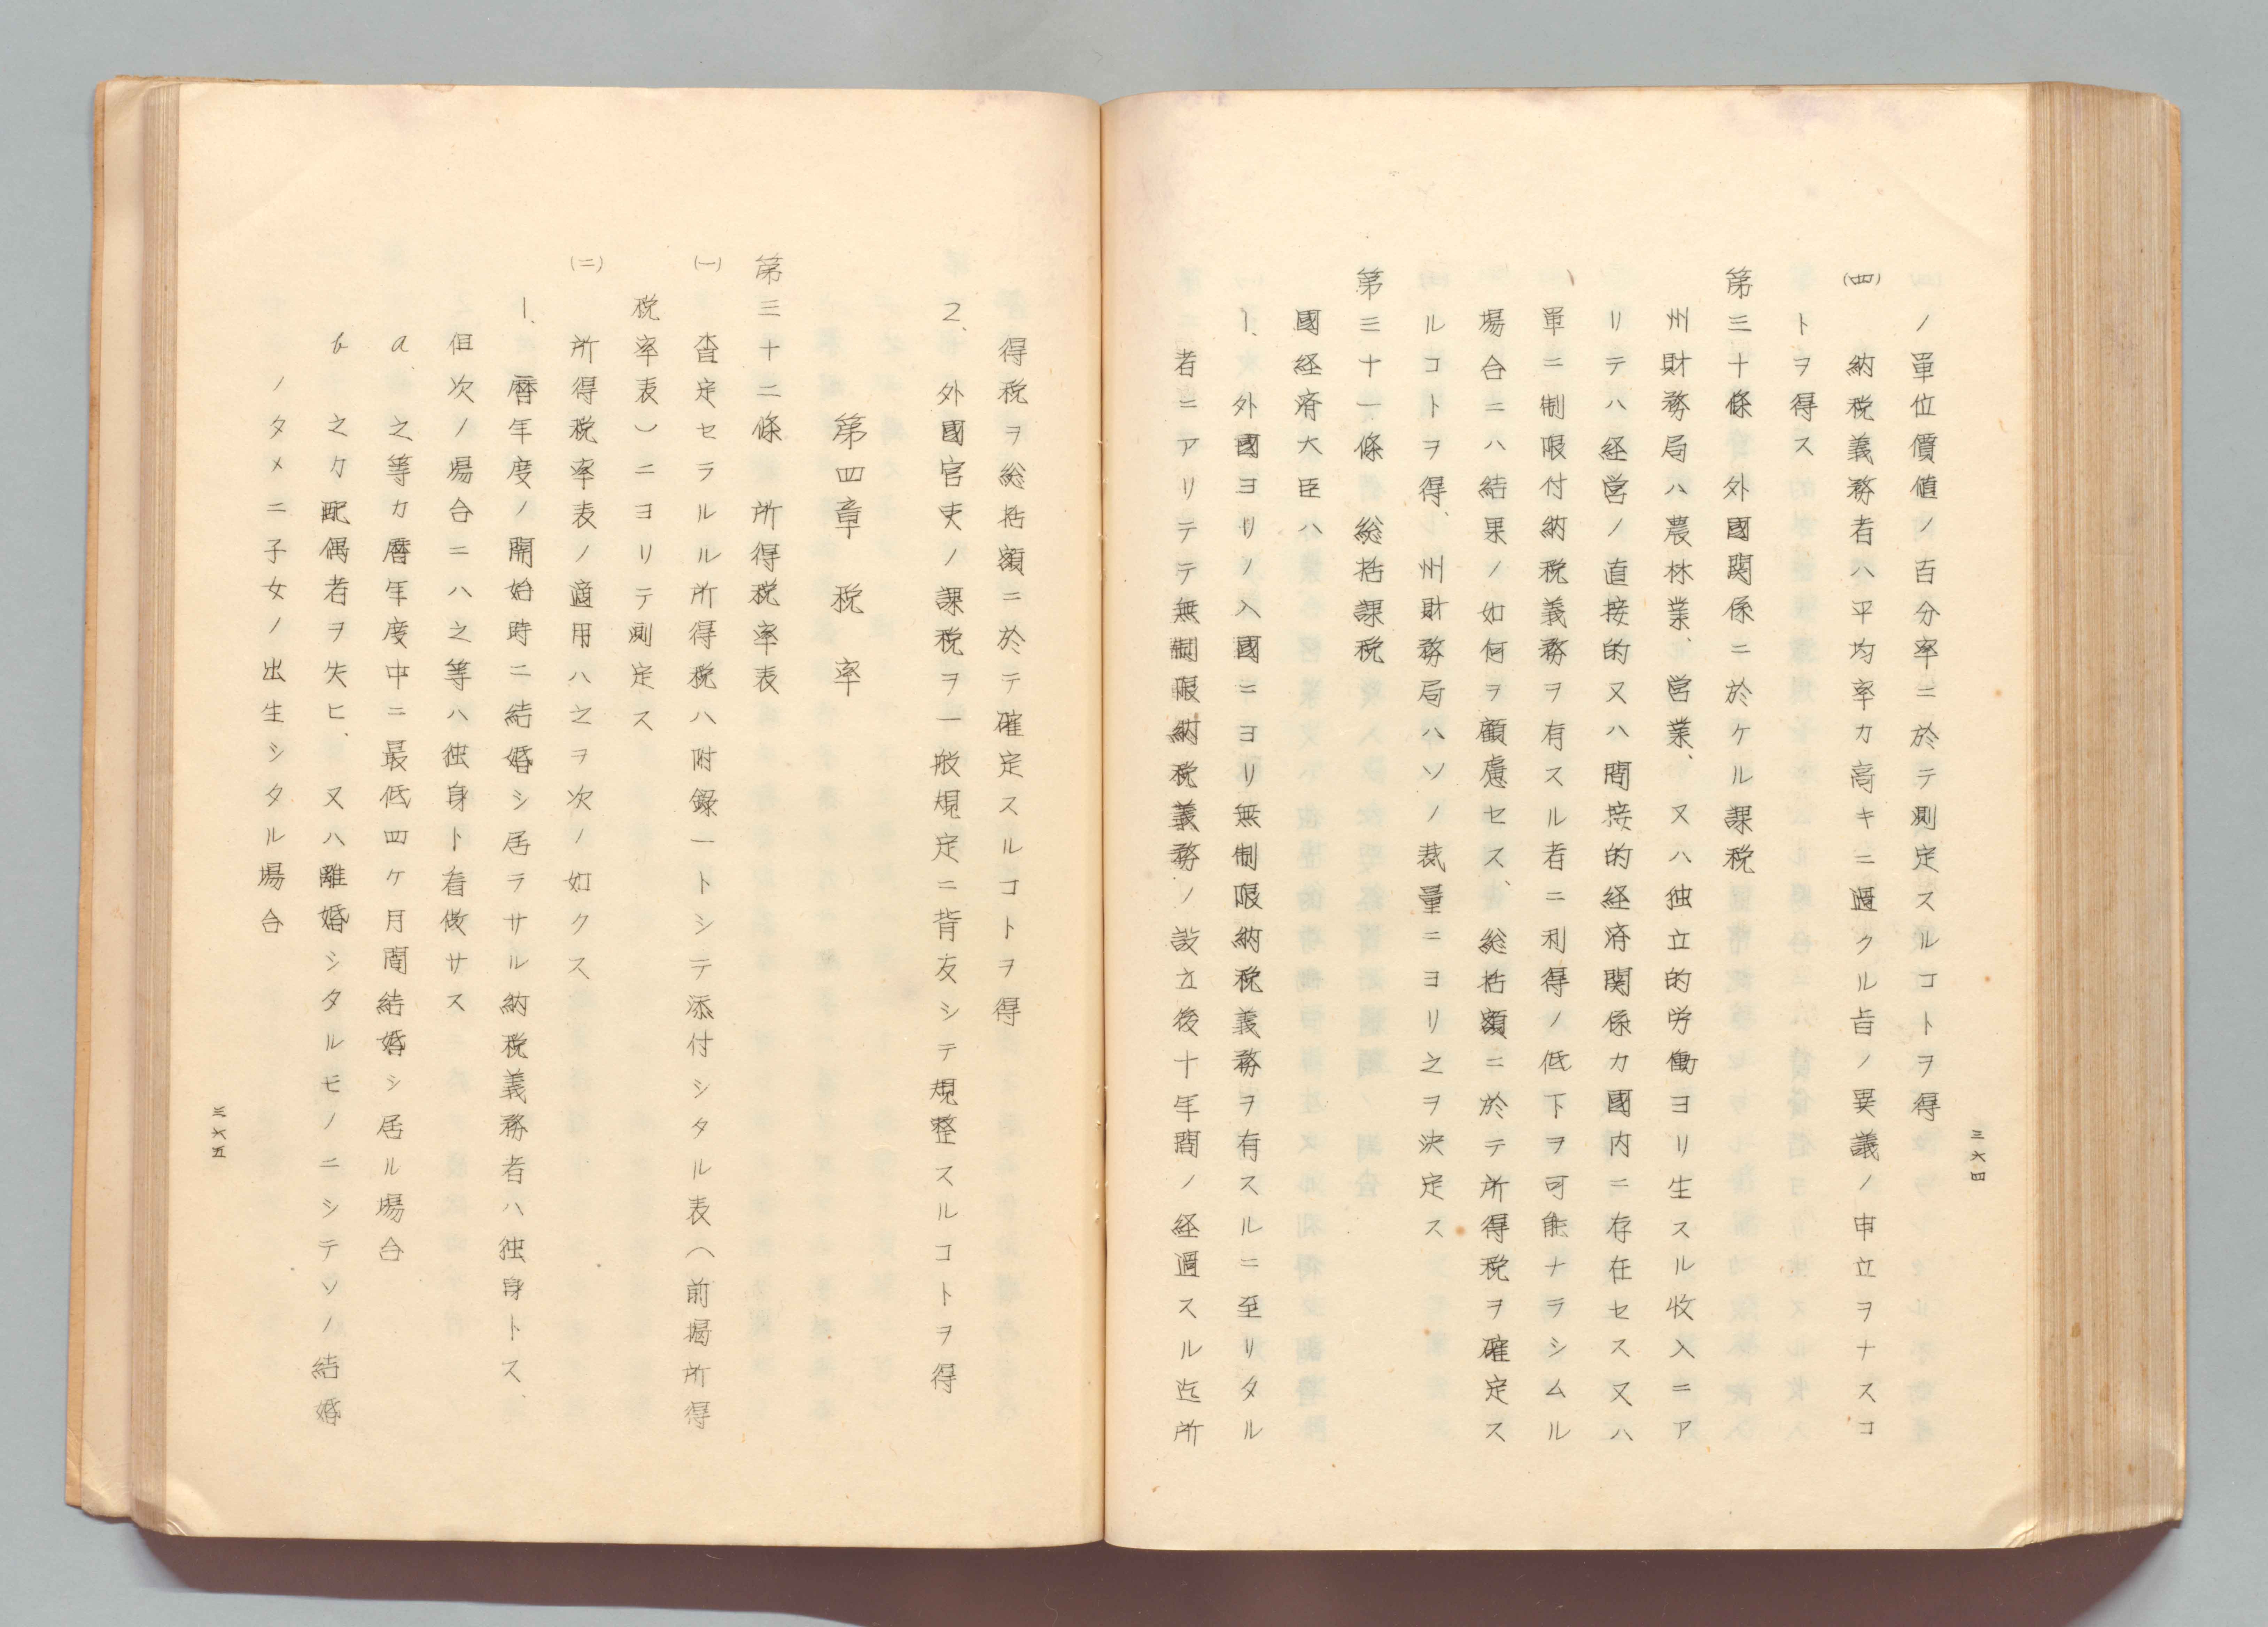 ノ單位價値ノ百分率ニ於テ測定スルコトヲ得
(四) 納税義務者ハ平均率カ高キニ過クル旨ノ異議ノ申立ヲナスコ
トヲ得ス
第三十條 外國関係ニ於ケル課税
州財務局ハ農林業、営業、又ハ独立的労働ヨリ生スル收入ニア
リテハ経営ノ直接的又ハ間接的経済関係カ國内ニ存在セス又ハ
單ニ制限付納税義務ヲ有スル者ニ利得ノ低下ヲ可能ナラシムル
場合ニハ結果ノ如何ヲ顧慮セス、総括額ニ於テ所得税ヲ確定ス
ルコトヲ得、州財務局ハソノ裁量ニヨリ之ヲ決定ス
第三十一條 総括課税
國経済大臣ハ
1、外國ヨリノ入國ニヨリ無制限納税義務ヲ有スルニ至リタル
者ニアリテテ無制限納税義務ノ設立後十年間ノ経過スル迄所
三六四
得税ヲ総括額ニ於テ確定スルコトヲ得
2、外國官吏ノ課税ヲ一般規定ニ背反シテ規整スルコトヲ得
第四章 税率
第三十二條 所得税率表
(一) 査定セラルル所得税ハ附録一トシテ添付シタル表(前掲所得
税率表)ニヨリテ測定ス
(二) 所得税率表ノ適用ハ之ヲ次ノ如クス
1、暦年度ノ開始時ニ結婚シ居ラサル納税義務者ハ独身トス、
但次ノ場合ニハ之等ハ独身ト看做サス
a 之等カ暦年度中ニ最低四ケ月間結婚シ居ル場合
b 之カ配偶者ヲ失ヒ、又ハ離婚シタルモノニシテソノ結婚
ノタメニ子女ノ出生シタル場合
三六五